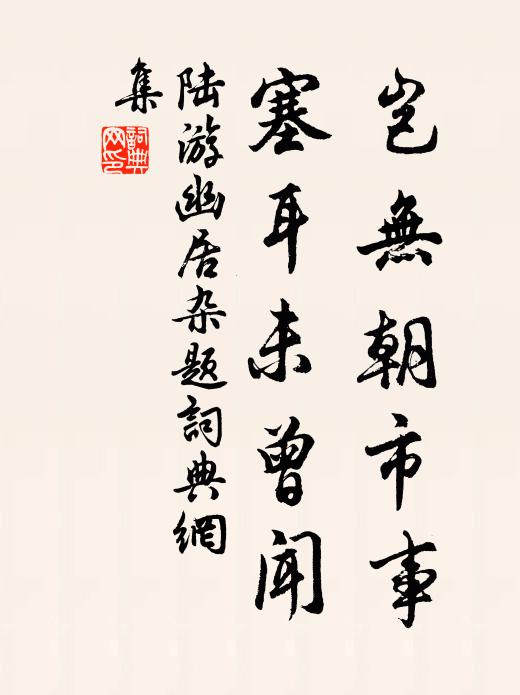 岂無朝市事
塞耳未曾聞
陆游幽居杂题詞典網
集
詞典
网印